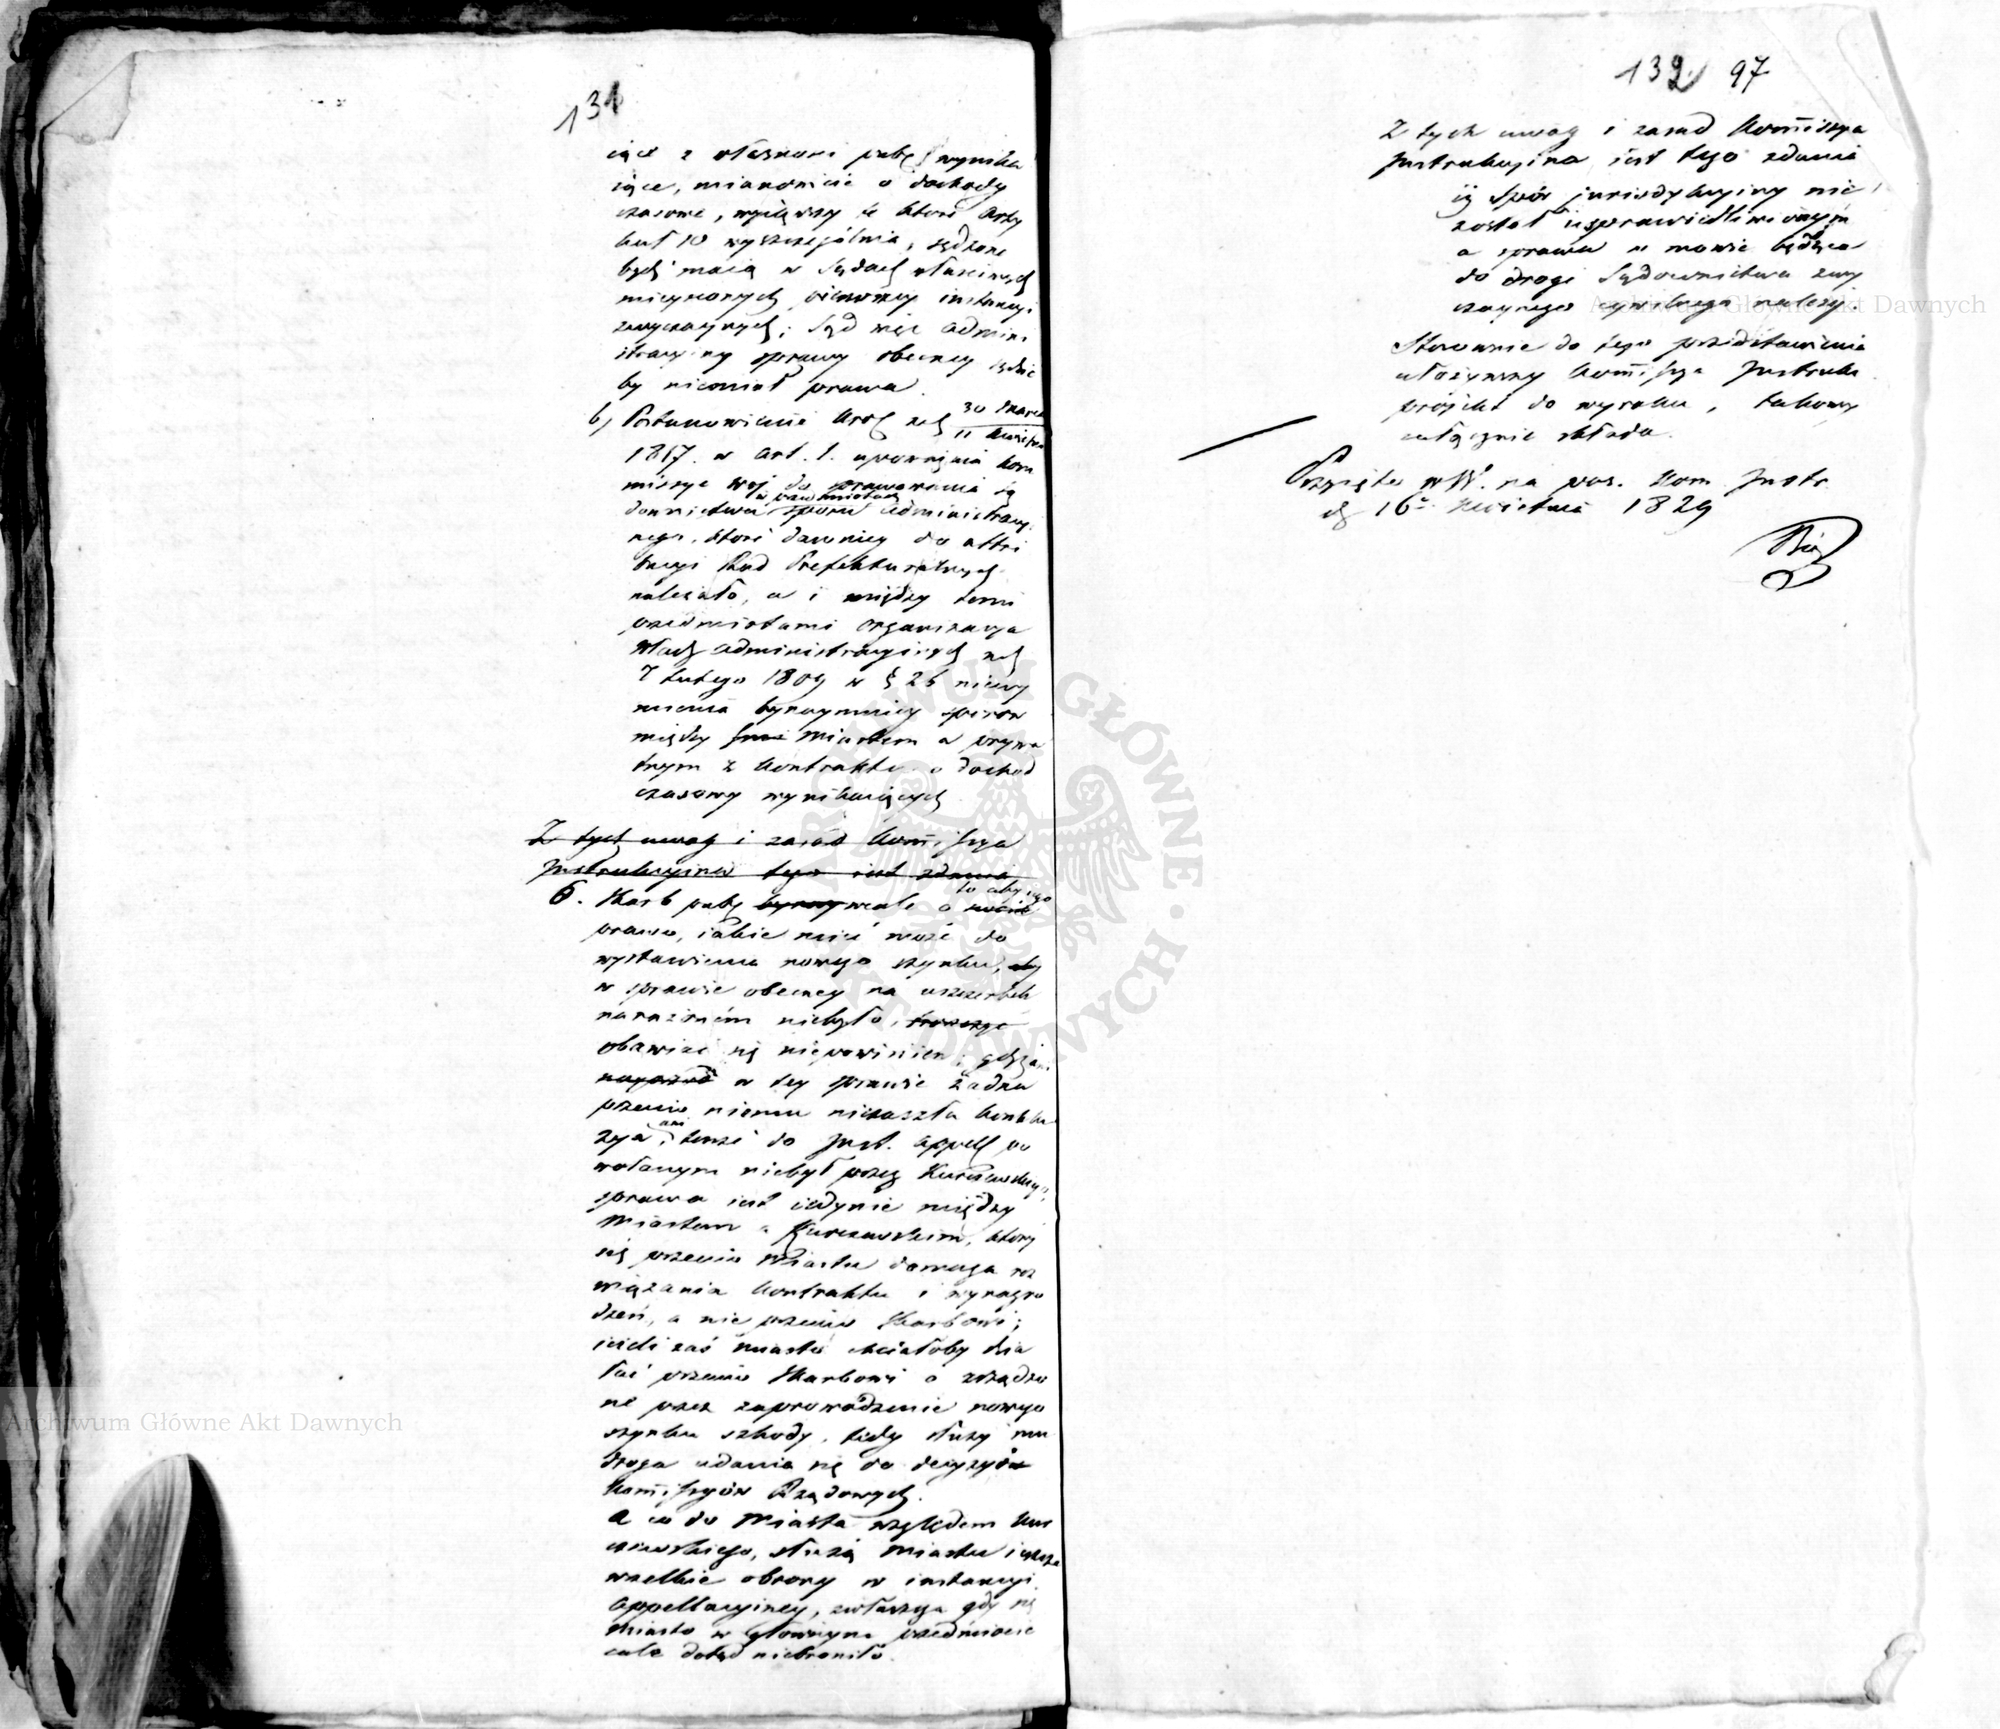 131
iące z własności pub. wynika
iące, mianowicie o dochody
czasowe, wyiąwszy te które Arty
kuł 10 wyszczególnia, sądzone
bydź maią w Sądach właściwych
mieyscowych pierwszey instancyi
zwyczaynych; Sąd więc admini
stracyiny sprawy obecney sądzić
by niemiał prawa.
b) Postanowienie Król. z d. 30 Marca
11 Kwietnia
1817. w art. 1. upoważnia Kom
missye Woj. do sprawowania są
w przedmiotach
downictwa sporu administracyi
nego, które dawniey do attri
bucyi Rad Prefekturalnych
należało, a i między temi
przedmiotami organizacya
Władz administracyinych z d.
7 Lutego 1809 w § 26 niewy
mienia bynaymniey sporów
między Miastem a prywa
tnym z kontraktu o dochód
czasowy wynikaiących
Z tych uwag i zasad Kommissya
Instrukcyina tego iest zdania
6. Skarb pub. bynay wcale o to aby iego
prawo, iakie mieć może do
wystawienia nowego szynku, aby
w sprawie obecney na uszczerbek
narażonem niebyło,
obawiać się niepowinien; gdyż ani
naprzód w tey sprawie żadna
przeciw niemu niezaszła konklu
zya, ani tenże do Inst. Appell. po
wołanym niebył przez Kurczewskiego,
sprawa iest iedynie między
Miastem a Kurczewskim, który
się przeciw Miastu domaga roz
wiązania kontraktu i wynagro
dzeń, a nie przeciw Skarbowi;
ieżeli zaś miasto chciałoby dzia
łać przeciw Skarbowi o zrządzo
ne przez zaprowadzenie nowego
szynku szkody, tedy służy mu
droga udania się do decyzyów
Kommissyów Rządowych.
A co do Miasta względem Kur
czewskiego, służą Miastu ieszcze
wszelkie obrony w instancyi
appellacyiney, zwłaszcza gdy się
Miasto w głównym przedmiocie
wcale dotąd niebroniło.
132 97
Z tych uwag i zasad Kommissya
Instrukcyina iest tego zdania
iż Spór jurisdykcyiny nie
został usprawiedliwionym
a sprawa w mowie będąca
do drogi Sądownictwa zwy
czaynego cywilnego należy.
Stosownie do tego przedstawienia
ułożywszy Kommissya Instrukc.
proiekt do wyroku, takowy
załącznie składa.
Przyięto w W. na pos. Kom. Instr.
d. 16. Kwietnia 1829
Archiwum Główne Akt Dawnych
Archiwum Główne Akt Dawnych
ARCHIWUM GŁÓWNE · AKT DAWNYCH ·